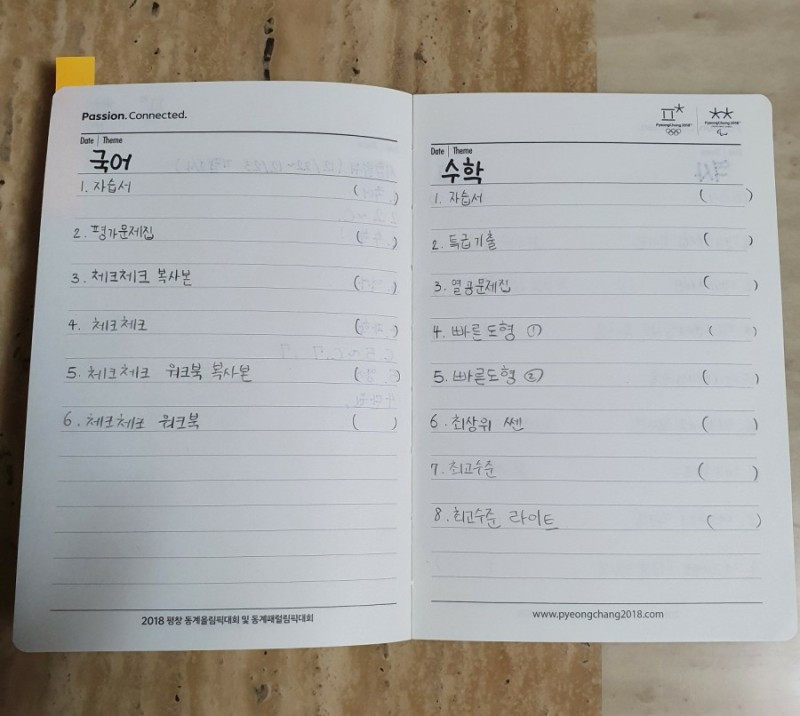 Passion. Connected.
Date Theme
국어
1. 자습서 ( )
2. 평가문제집 ( )
3. 체크체크 복사본 ( )
4. 체크체크 ( )
5. 체크체크 워크북 복사본 ( )
6. 체크체크 워크북 ( )
2018 평창 동계올림픽대회 및 동계패럴림픽대회
PyeongChang 2018
PyeongChang 2018
Date Theme
수학
1. 자습서 ( )
2. 특급기출 ( )
3. 열공문제집 ( )
4. 빠른도형 ① ( )
5. 빠른도형 ② ( )
6. 최상위 쎈 ( )
7. 최고수준 ( )
8. 최고수준 라이트 ( )
www.pyeongchang2018.com